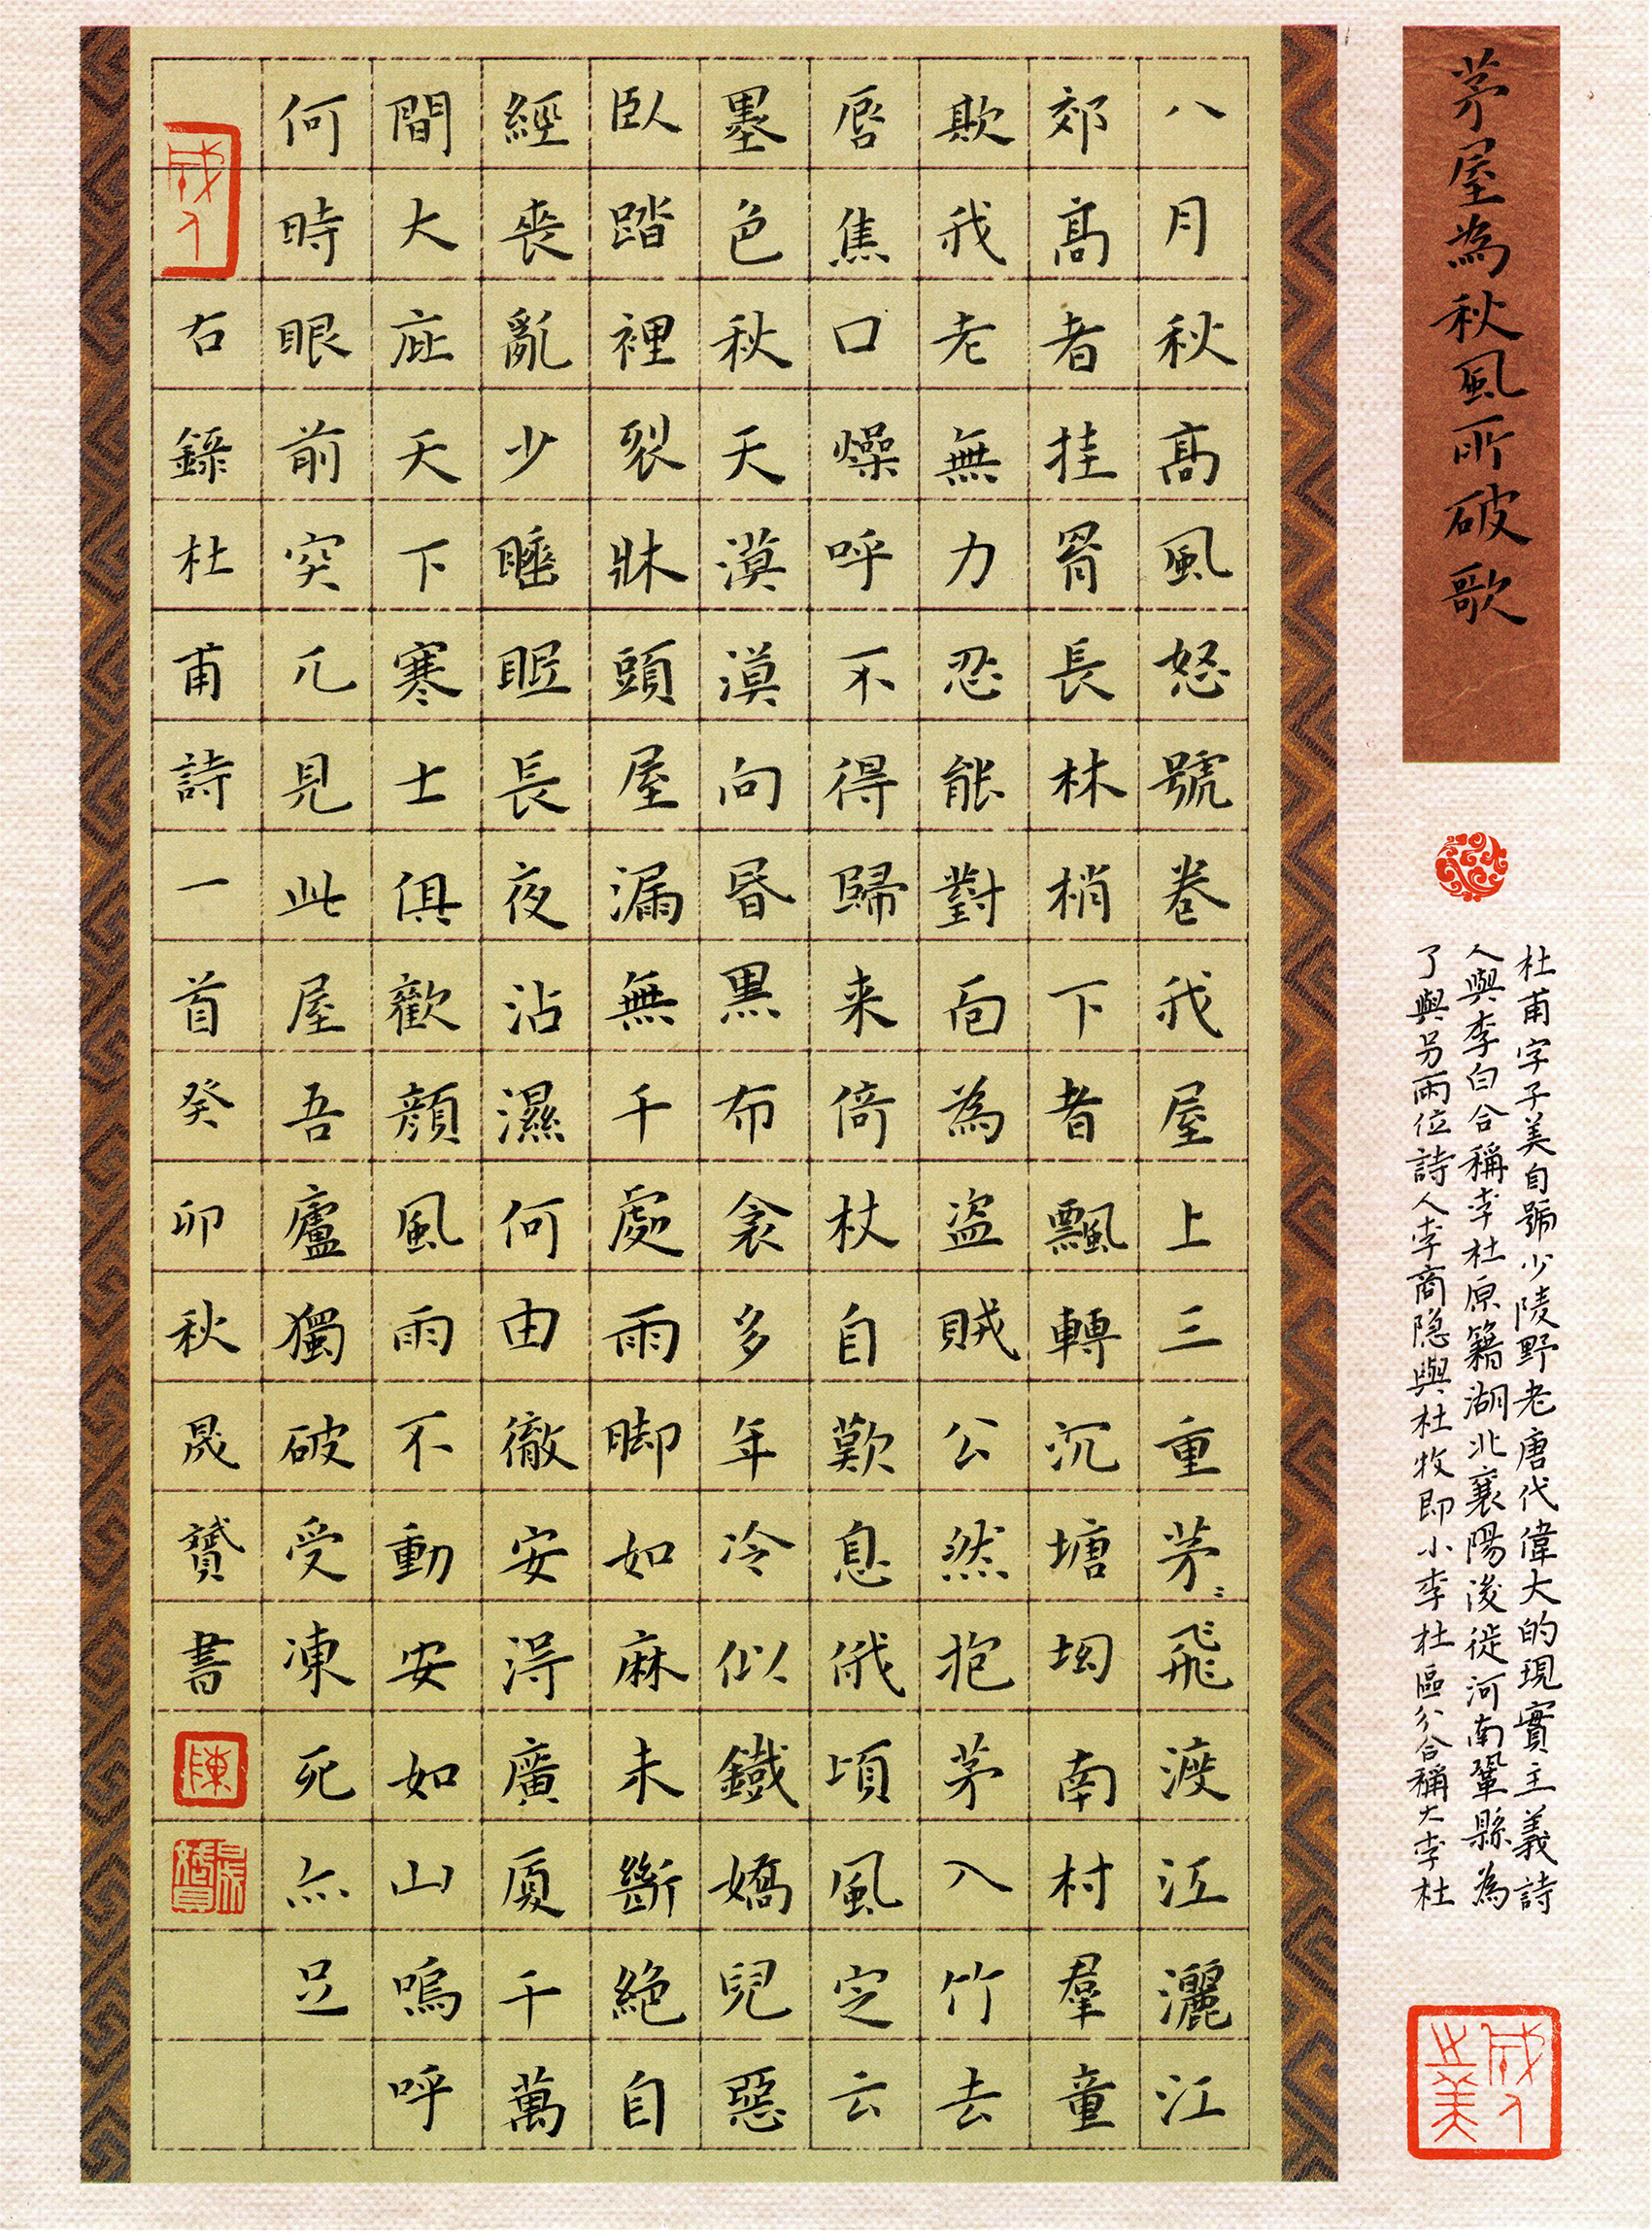 茅屋為秋風所破歌
杜甫字子美自號少陵野老唐代偉大的現實主義詩
人與李白合稱李杜原籍湖北襄陽後徙河南鞏縣為
了與另兩位詩人李商隱與杜牧即小李杜區分合稱大李杜
成人之美
八月秋高風怒號卷我屋上三重茅〻飛渡江灑江
郊高者挂罥長林梢下者飄轉沉塘坳南村羣童
欺我老無力忍能對面為盜賊公然抱茅入竹去
唇焦口燥呼不得歸来倚杖自歎息俄頃風定云
墨色秋天漠漠向昏黑布衾多年冷似鐵嬌兒惡
臥踏裡裂牀頭屋漏無千處雨脚如麻未斷絕自
經喪亂少睡眠長夜沾濕何由徹安得廣廈千萬
間大庇天下寒士俱歡顔風雨不動安如山嗚呼
何時眼前突兀見此屋吾廬獨破受凍死亦足
成人
右錄杜甫詩一首癸卯秋晟贇書
陳
晟贇